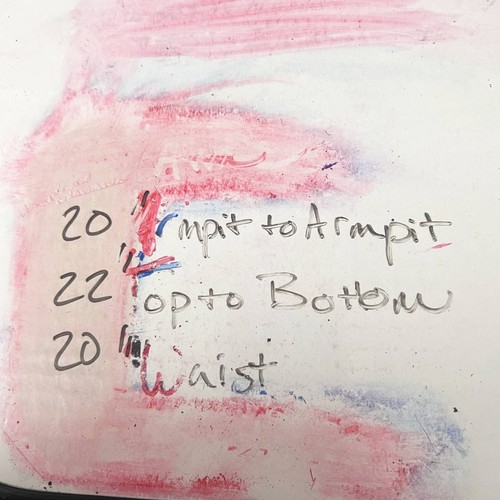 20" Armpit to Armpit
22" Top to Bottom
20" Waist